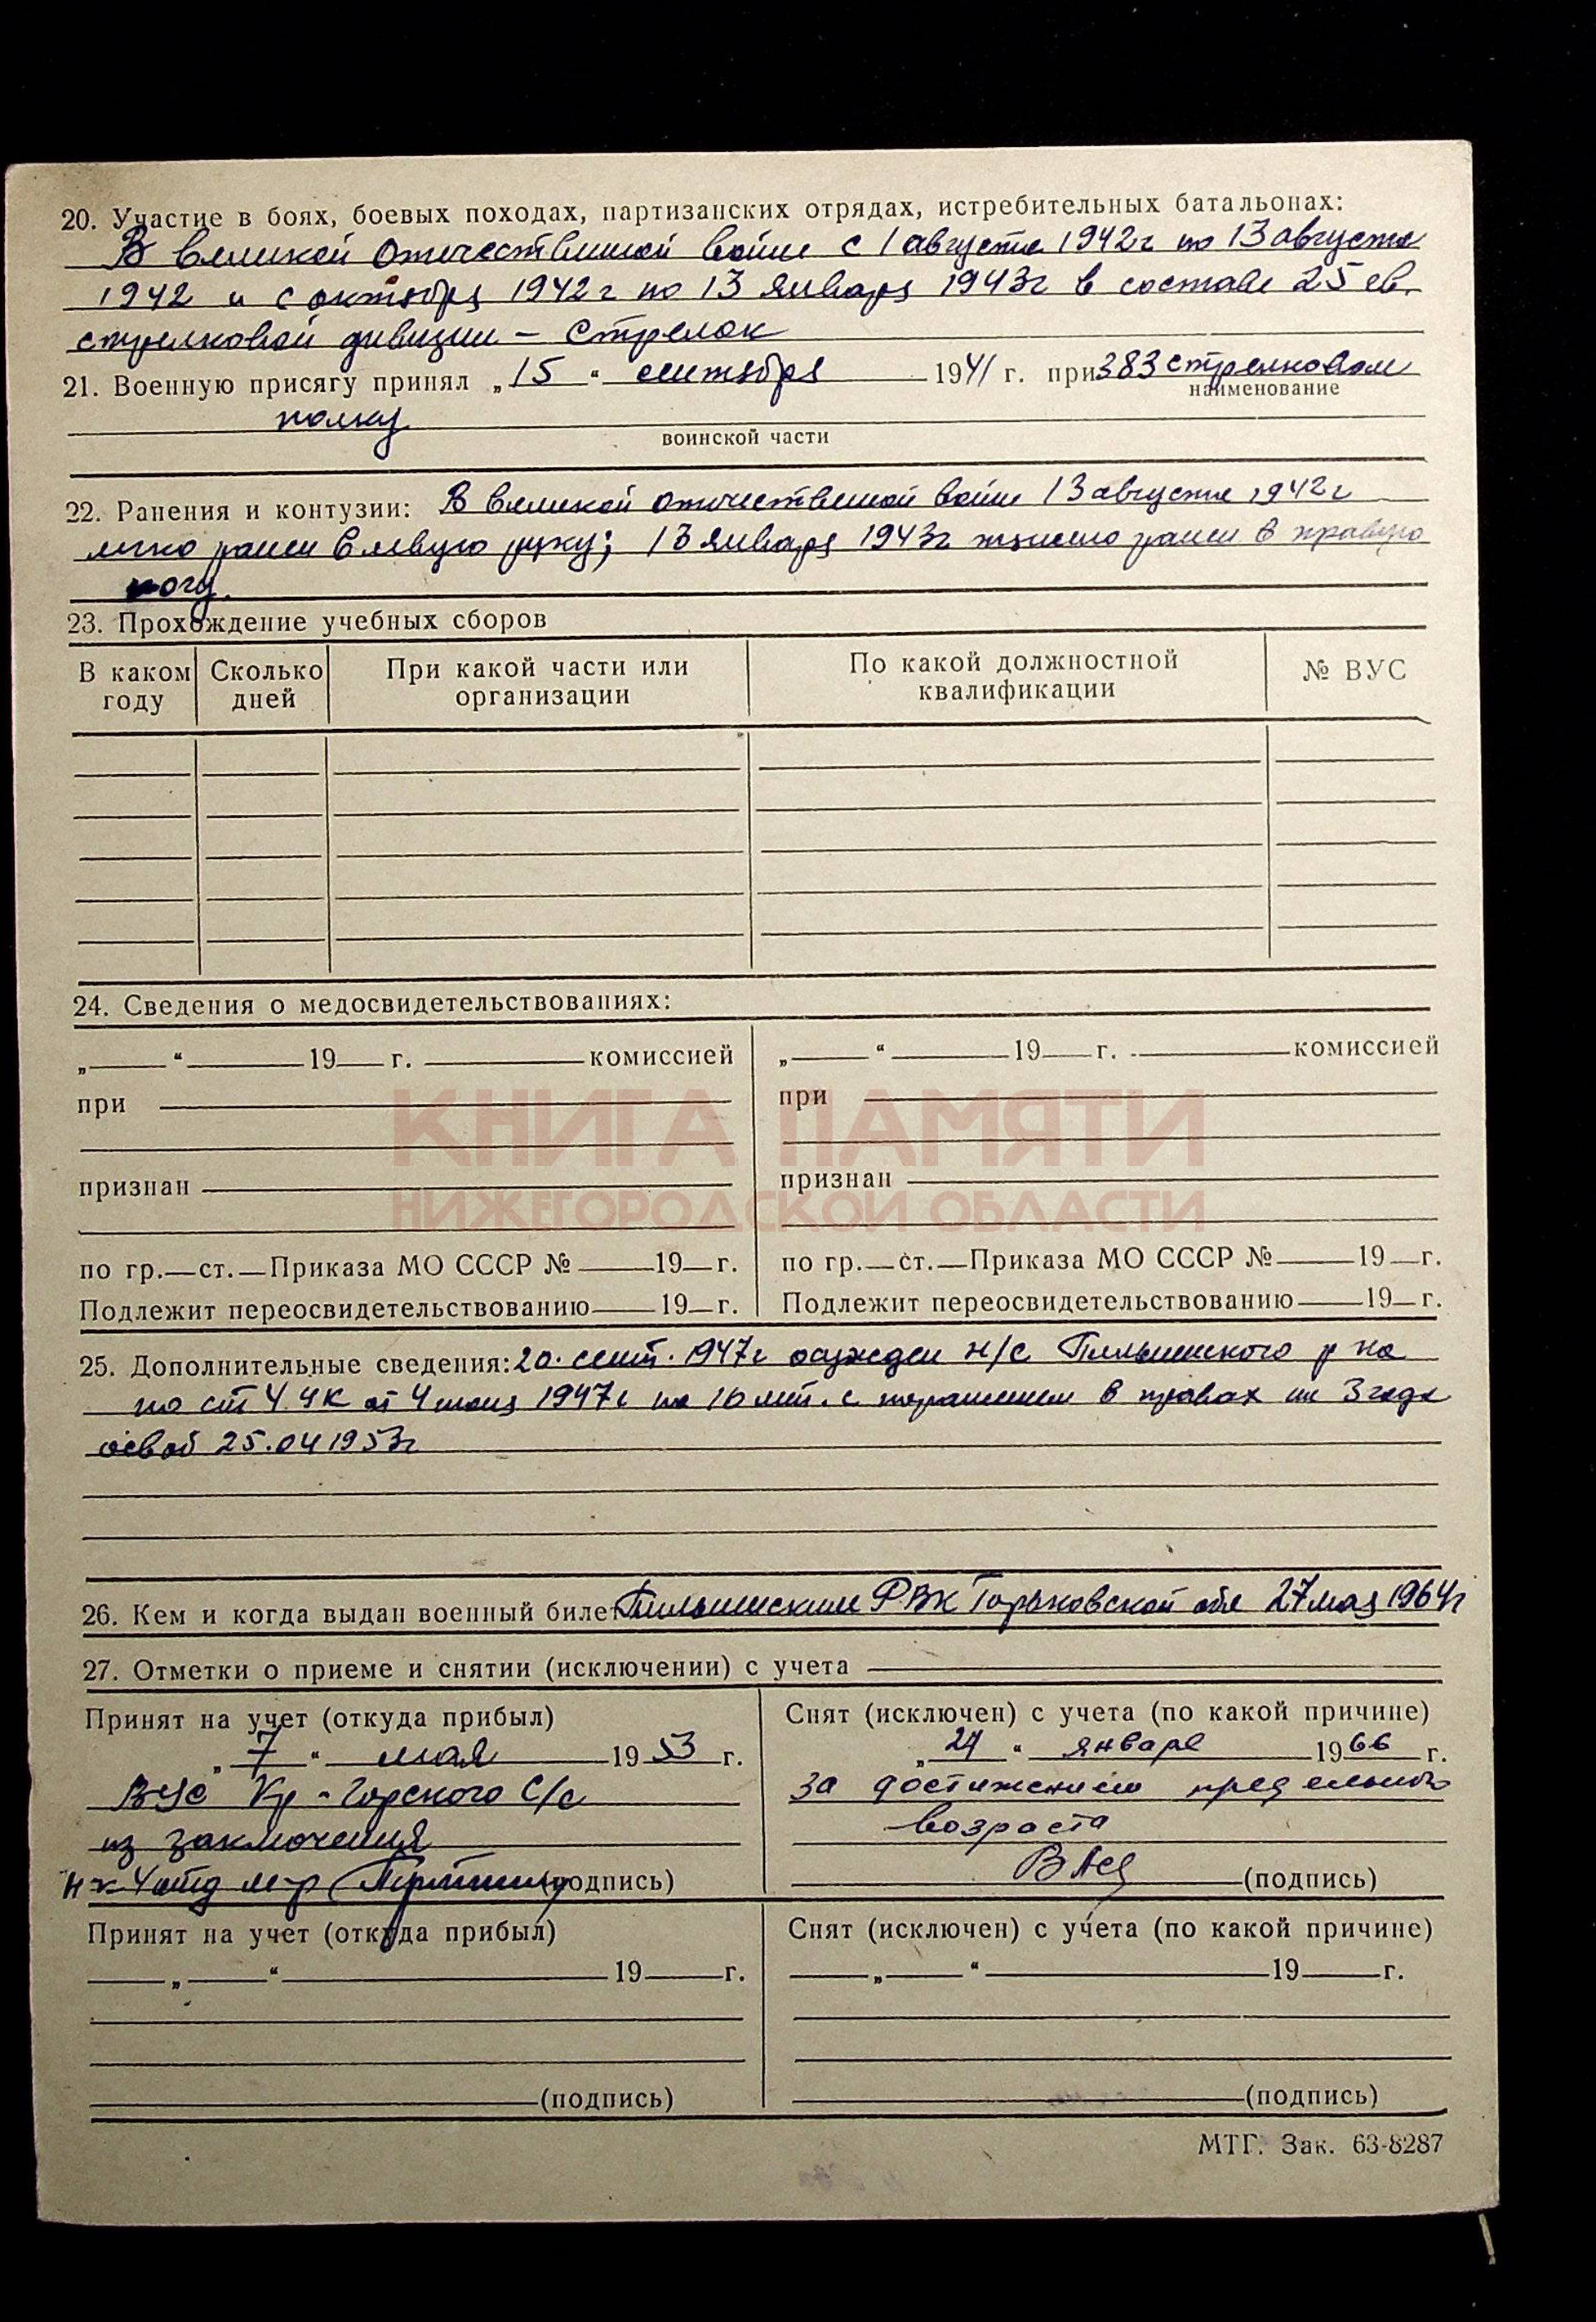 20. Участие в боях, боевых походах, партизанских отрядах, истребительных батальонах:
В великой Отечественной войне с 1 августа 1942г по 13 августа
1942 и с октября 1942г по 13 января 1943г в составе 25 гв.
стрелковой дивизии – Стрелок
21. Военную присягу принял „15“ сентября 1941 г. при 383 стрелковом
наименование
полку
воинской части
22. Ранения и контузии: В великой отечественной войне 13 августа 1942г
легко ранен в левую руку; 13 января 1943г тяжело ранен в правую
ногу.
23. Прохождение учебных сборов
В каком году Сколько дней При какой части или организации По какой должностной квалификации № ВУС
24. Сведения о медосвидетельствованиях:
„ “ 19 г. комиссией „ “ 19 г. комиссией
при при
КНИГА ПАМЯТИ
признан признан
НИЖЕГОРОДСКОЙ ОБЛАСТИ
по гр. ст. Приказа МО СССР № 19 г. по гр. ст. Приказа МО СССР № 19 г.
Подлежит переосвидетельствованию 19 г. Подлежит переосвидетельствованию 19 г.
25. Дополнительные сведения: 20. сент. 1947г осужден н/с Пильнинского р на
по ст 4. УК от 4 июня 1947г на 10 лет. с поражением в правах на 3 года
освоб 25.04 1953г
26. Кем и когда выдан военный билет Пильнинским РВК Горьковской обл 27 мая 1964г
27. Отметки о приеме и снятии (исключении) с учета
Принят на учет (откуда прибыл) Снят (исключен) с учета (по какой причине)
„7“ мая 1953 г. „24“ января 1966 г.
ВУС Кр-Горского С/с за достижением предельного
из заключения возраста
(подпись) (подпись)
Принят на учет (откуда прибыл) Снят (исключен) с учета (по какой причине)
„ “ 19 г. „ “ 19 г.
(подпись) (подпись)
МТГ. Зак. 63-8287